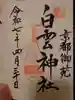 京都御苑
白雲神社
令和七年四月三日